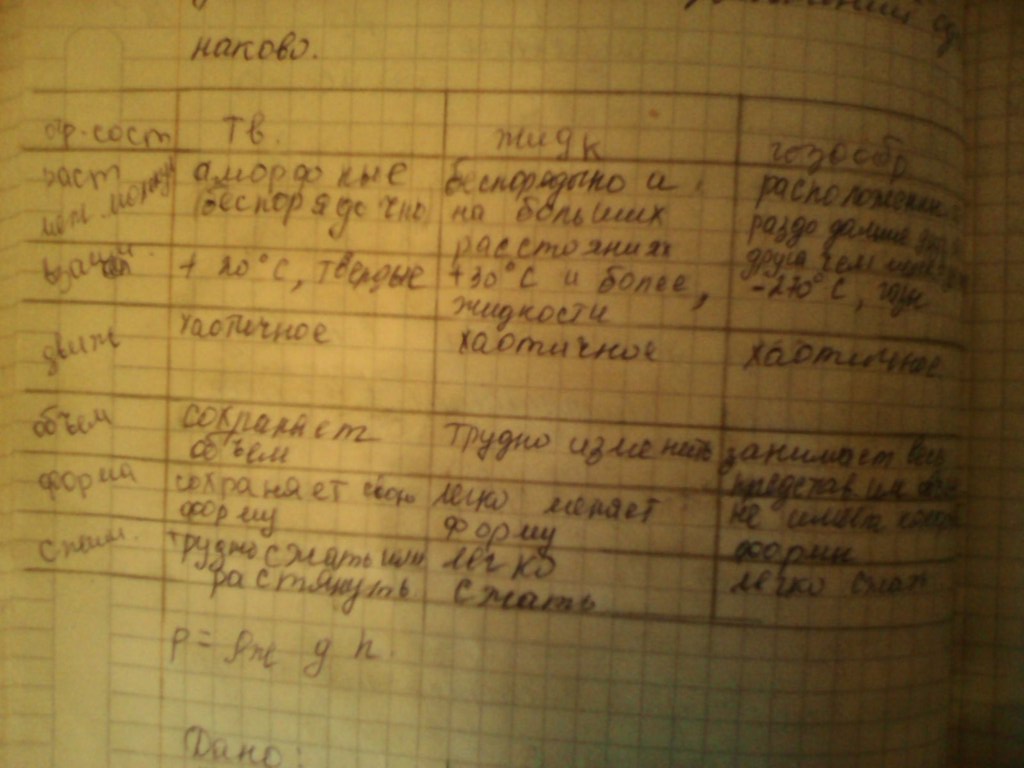 наково.
агр. сост тв. жидк газообр
раст аморфные беспорядочно и расположение
беспорядочно на больших раздо дальше
расстояниях друга чем
взаим + 20°С, твердые +30°С и более, -270°С,
жидкости
движ хаотичное хаотичное хаотичное
объем сохраняет трудно изменить занимает весь
объем
форма сохраняет свою легко меняет не имеет
форму форму формы
сжим. трудно сжать или легко легко сжать
растянуть сжать
p = ρж g h.
Дано: